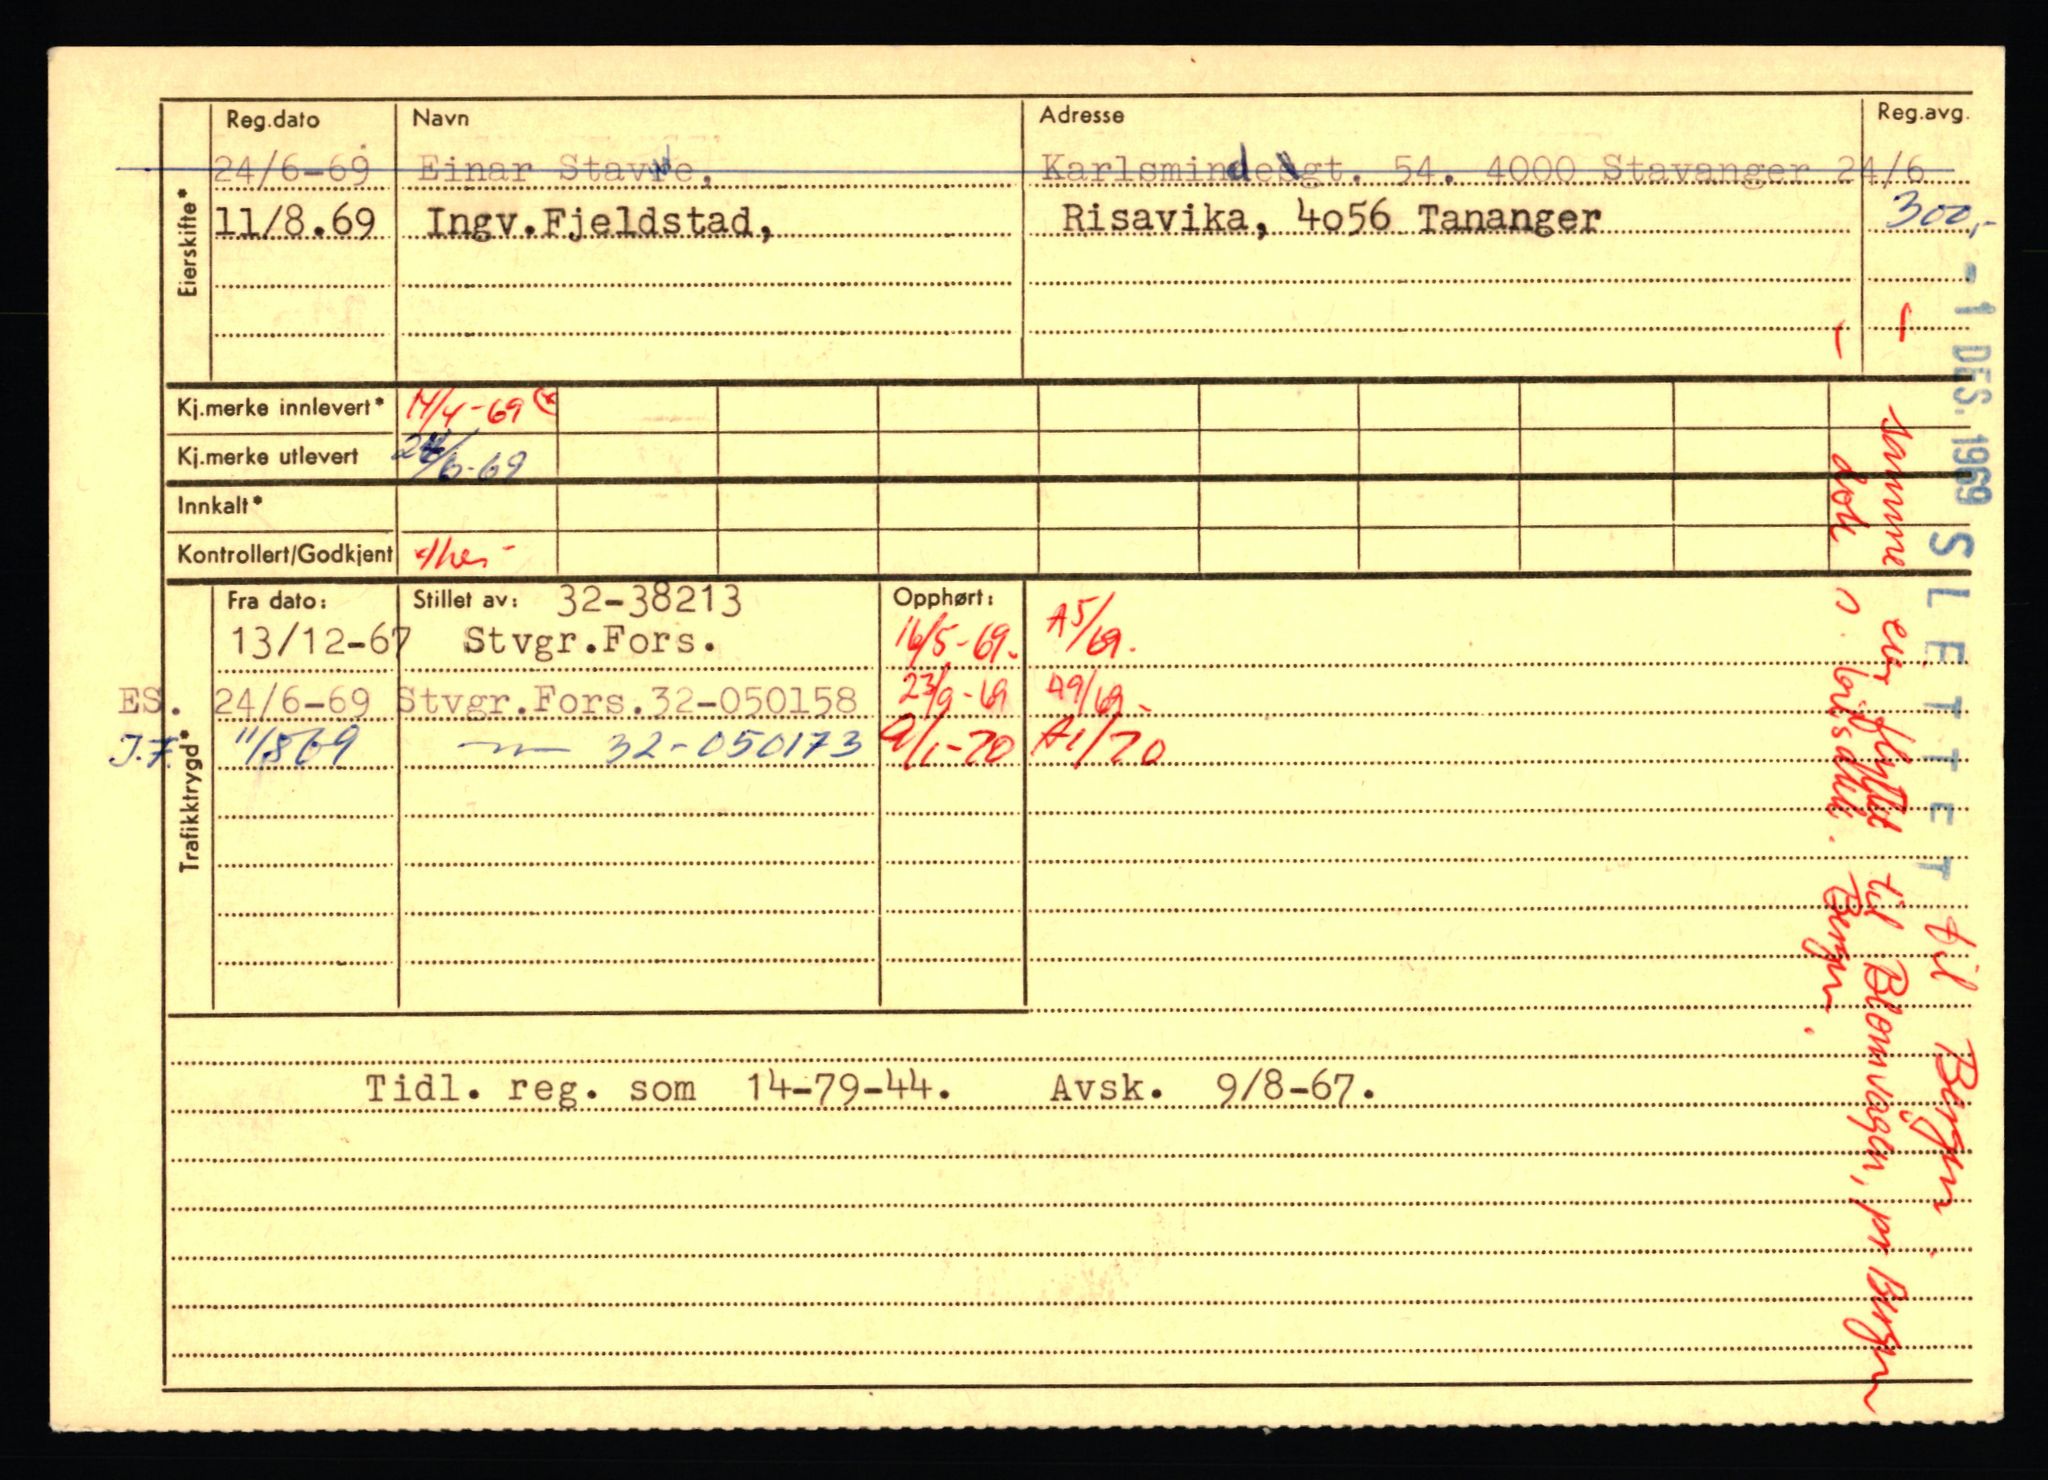 Reg.dato Navn Adresse Reg.avg.
24/6-69 Einar Stavne, Karlsmindegt. 54. 4000 Stavanger 24/6
11/8.69 Ingv.Fjeldstad, Risavika, 4o56 Tananger 300,-
Eierskifte*
Kj.merke innlevert* 14/4-69
Kj.merke utlevert 24/6-69
Innkalt*
Kontrollert/Godkjent
Fra dato: Stillet av: 32-38213 Opphørt:
13/12-67 Stvgr.Fors. 16/5-69. A5/69.
ES. 24/6-69 Stvgr.Fors.32-050158 23/9-69 A9/69.
J.F. 11/8 69 —"— 32-050173 9/1-70 A1/70
Trafikktrygd*
Tidl. reg. som 14-79-44. Avsk. 9/8-67.
-1 DES. 1969 SLETTET til Bergen.
- samme eier flyttet til Blomvågen, pr Bergen
- dok. o. bilsakk. Bergen.